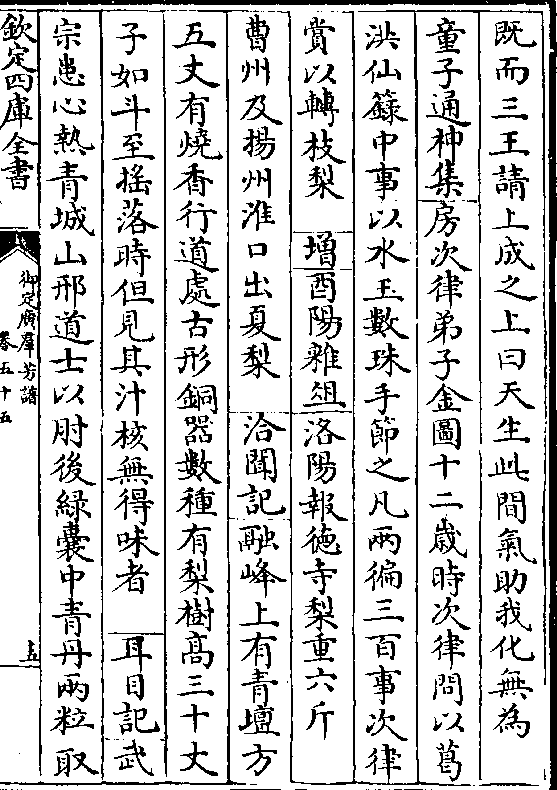 既而三王請上成之上曰天生此間氣助我化無為
童子通神集房次律弟子金圖十二歲時次律問以葛
洪仙籙中事以水玉數珠手節之凡兩徧三百事次律
賞以轉枝梨　增酉陽雜俎洛陽報德寺梨重六斤
曹州及揚州淮口出夏梨　洽聞記融峰上有青壇方
五丈有燒香行道處古形銅器數種有梨樹高三十丈
子如斗至搖落時但見其汁核無得味者　耳目記武
宗患心熱青城山邢道士以肘後綠囊中青丹兩粒取
欽定四庫全書
御定廣羣芳譜
卷五十五
十五